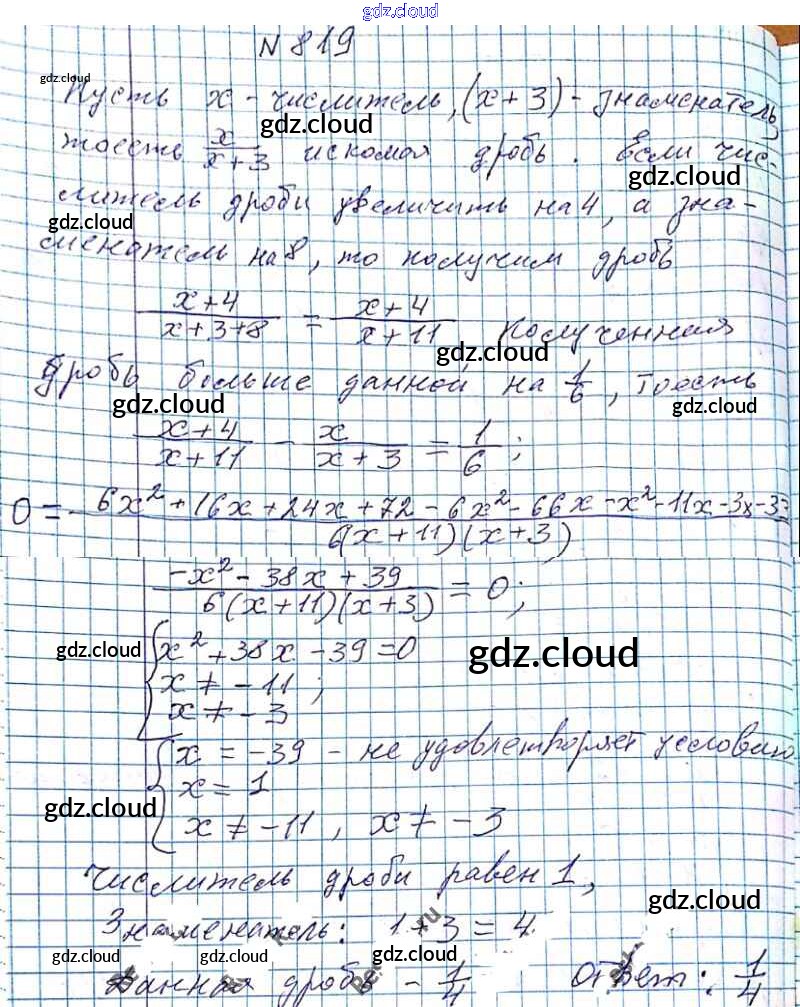 gdz.cloud
N 819
gdz.cloud
Пусть x - числитель, (x+3) - знаменатель,
gdz.cloud
тоесть x/(x+3) искомая дробь. Если чис-
gdz.cloud
литель дроби увеличить на 4, а зна-
gdz.cloud
менатель на 8, то получим дробь
(x+4)/(x+3+8) = (x+4)/(x+11) Полученная
gdz.cloud
дробь больше данной на 1/6, тоесть
gdz.cloud gdz.cloud
(x+4)/(x+11) - x/(x+3) = 1/6;
0 = (6x² + 16x + 24x + 72 - 6x² - 66x - x² - 11x - 3x - 33)/(6(x+11)(x+3))
(-x² - 38x + 39)/(6(x+11)(x+3)) = 0;
gdz.cloud gdz.cloud
{ x² + 38x - 39 = 0
x ≠ -11 ;
x ≠ -3
{ x = -39 - не удовлетворяет условию
x = 1
gdz.cloud gdz.cloud
x ≠ -11, x ≠ -3
Числитель дроби равен 1,
gdz.cloud
Знаменатель: 1+3 = 4.
gdz.cloud gdz.cloud
Данная дробь - 1/4 Ответ: 1/4
gdz.cloud